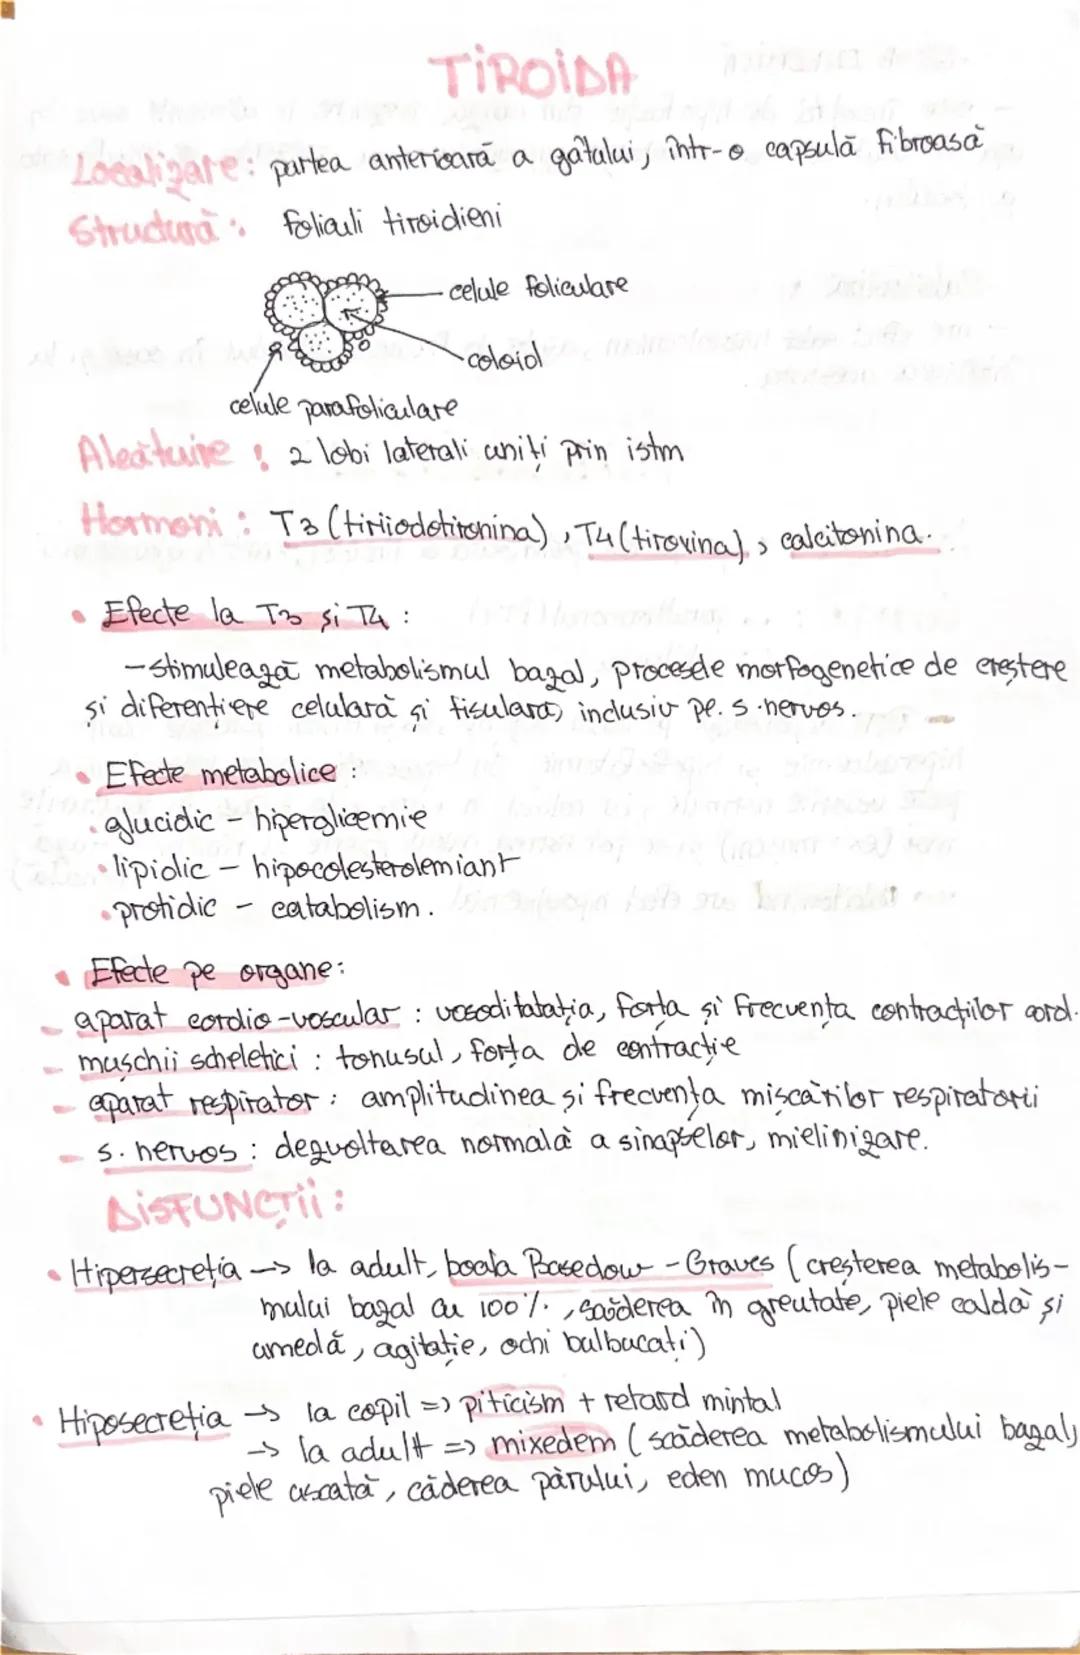 TIROIDA
Localizare: partea anterioară a gâtului, într-o capsulă fibroasă
Structură: foliculi tiroidieni
celule foliculare
coloid
celule parafoliculare
Alcătuire: 2 lobi laterali uniți prin istm
Hormoni: T3 (tiriiodotironina), T4 (tiroxina), calcitonina.
• Efecte la T3 și T4:
- stimulează metabolismul bazal, procesele morfogenetice de creștere
și diferențiere celulară și tisulară, inclusiv pe s. nervos.
• Efecte metabolice:
• glucidic - hiperglicemie
• lipidic - hipocolesterolemiant
• protidic - catabolism.
• Efecte pe organe:
- aparat cardio-vascular: vasoditatația, forța și frecvența contracțiilor cord.
- mușchii scheletici: tonusul, forța de contracție
- aparat respirator: amplitudinea și frecvența mișcărilor respiratorii
- s. nervos: dezvoltarea normală a sinapselor, mielinizare.
DISFUNCȚII:
• Hipersecreția → la adult, boala Basedow-Graves (creșterea metabolis-
mului bazal cu 100%, scăderea în greutate, piele caldă și
umedă, agitație, ochi bulbucați)
• Hiposecreția → la copil => piticism + retard mintal
→ la adult => mixedem (scăderea metabolismului bazal,
piele uscată, căderea părului, edem mucos)